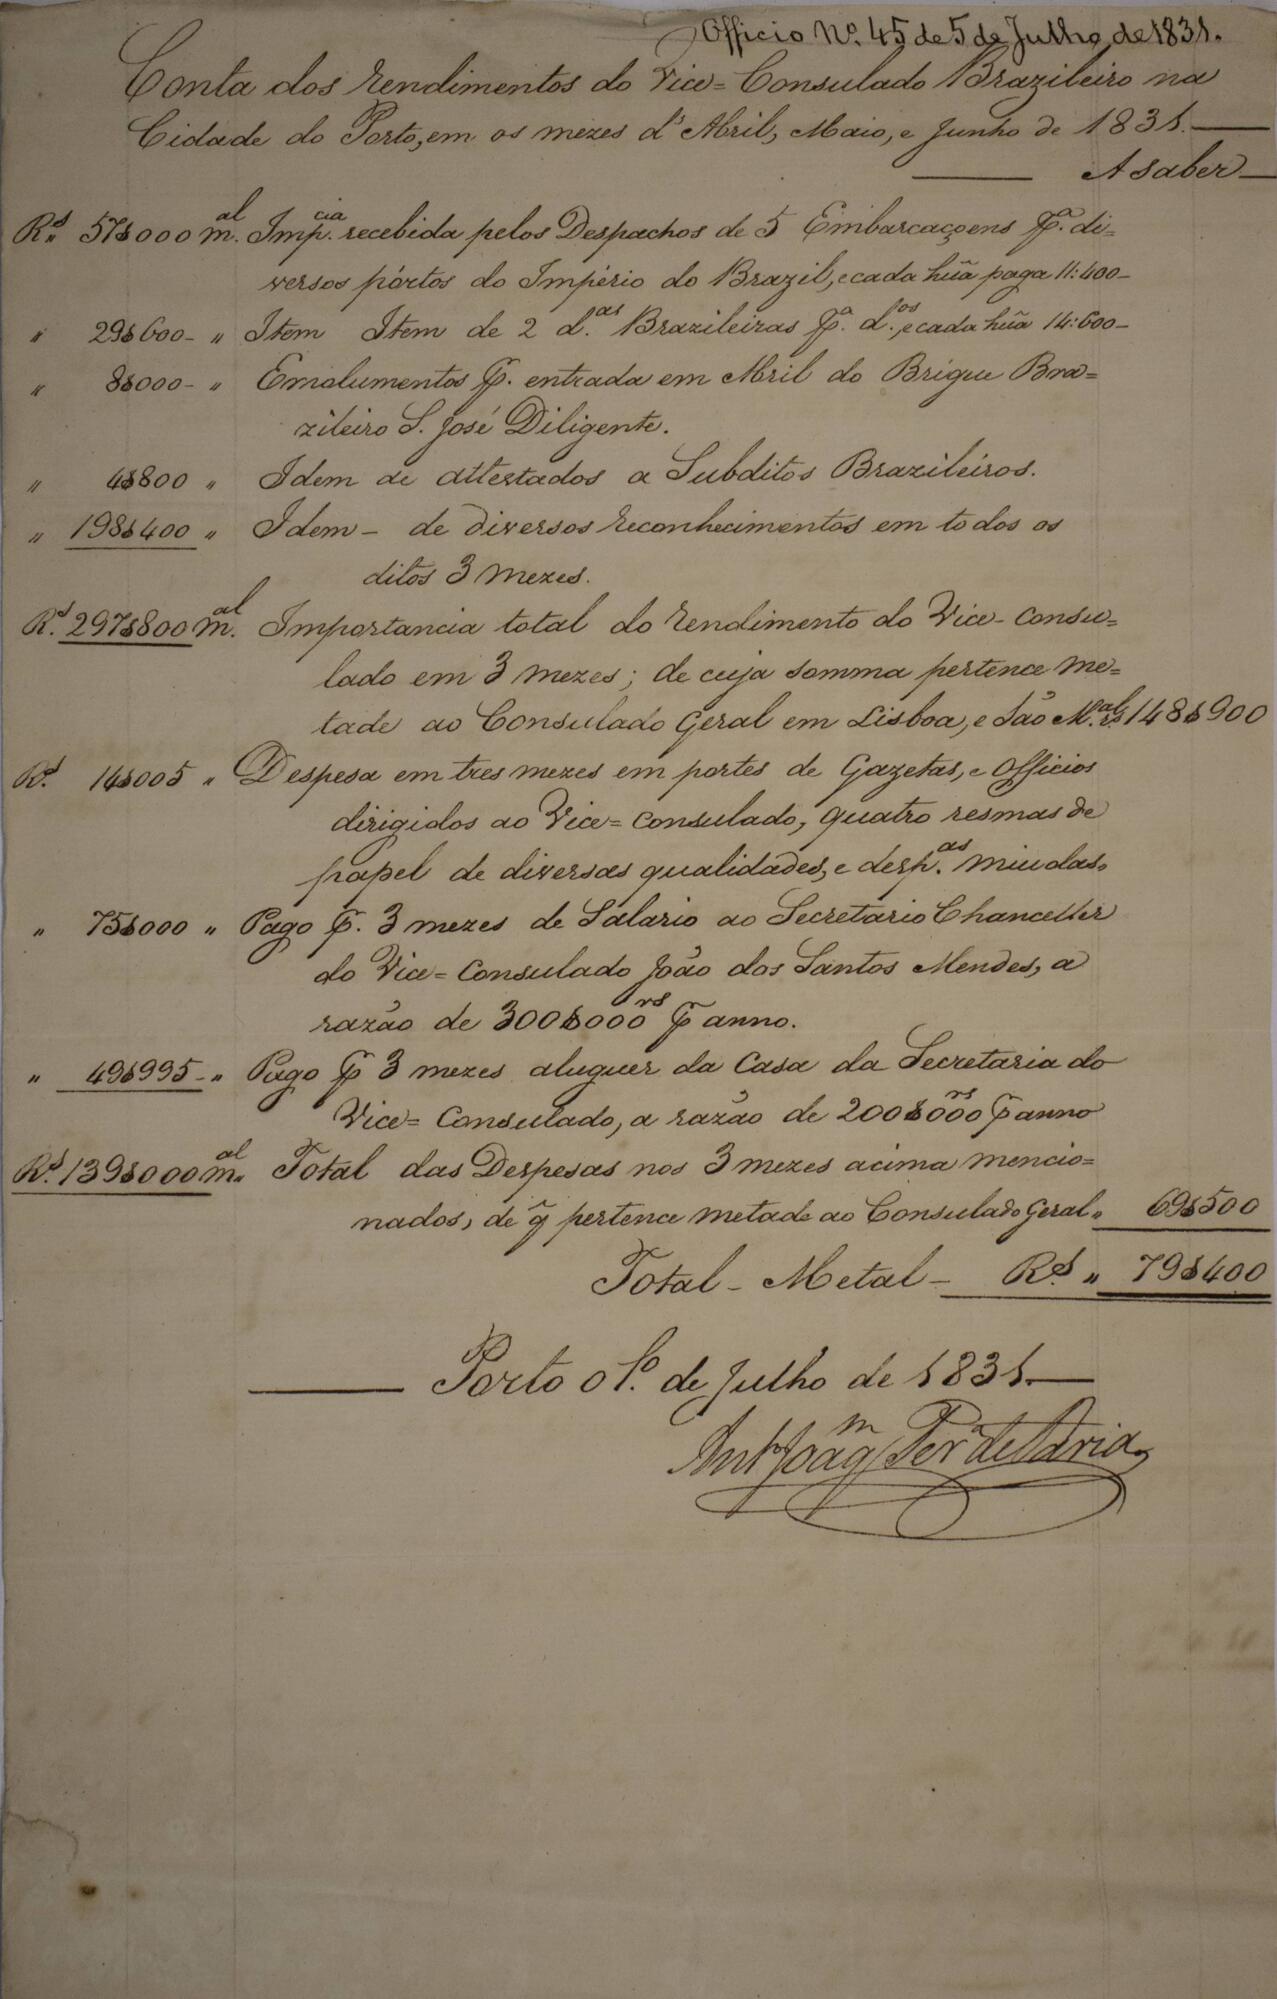 Officio Nº. 45 de 5 de Julho de 1831.
Conta dos rendimentos do Vice=Consulado Brazileiro na
Cidade do Porto, em os mezes d'Abril, Maio, e Junho de 1831.
A saber
Rs. 57$000 m.al Imp.cia recebida pelos Despachos de 5 Embarcaçoens p.a di=
versos pórtos do Império do Brazil, e cada hũa paga 11:400
" 29$600 " Item Item de 2 d.as Brazileiras p.a d.os, e cada hũa 14:600
" 8$000 " Emolumentos p. entrada em Abril do Brigue Bra=
zileiro S. José Diligente.
" 4$800 " Idem de attestados a Subditos Brazileiros.
" 198$400 " Idem - de diversos reconhecimentos em todos os
ditos 3 mezes.
Rs. 297$800 m.al Importancia total do rendimento do Vice-Consu=
lado em 3 mezes; de cuja somma pertence me=
tade ao Consulado Geral em Lisboa, e São M.al rs 148$900
Rs. 14$005 " Despesa em tres mezes em portes de Gazetas, e Officios
dirigidos ao Vice=Consulado, quatro resmas de
papel de diversas qualidades, e desp.as miudas.
" 75$000 " Pago p. 3 mezes de Salario ao Secretario Chanceller
do Vice=Consulado João dos Santos Mendes, a
razão de 300$000 rs p anno.
" 49$995 " Pago p 3 mezes aluguer da Casa da Secretaria do
Vice=Consulado, a razão de 200$000 rs p anno
Rs. 139$000 m.al Total das Despesas nos 3 mezes acima mencio=
nados, de q̃ pertence metade ao Consulado Geral " 69$500
Total - Metal - Rs. " 79$400
Porto o 1º. de Julho de 1831.
Ant.º Joaq.m Per.a de Faria